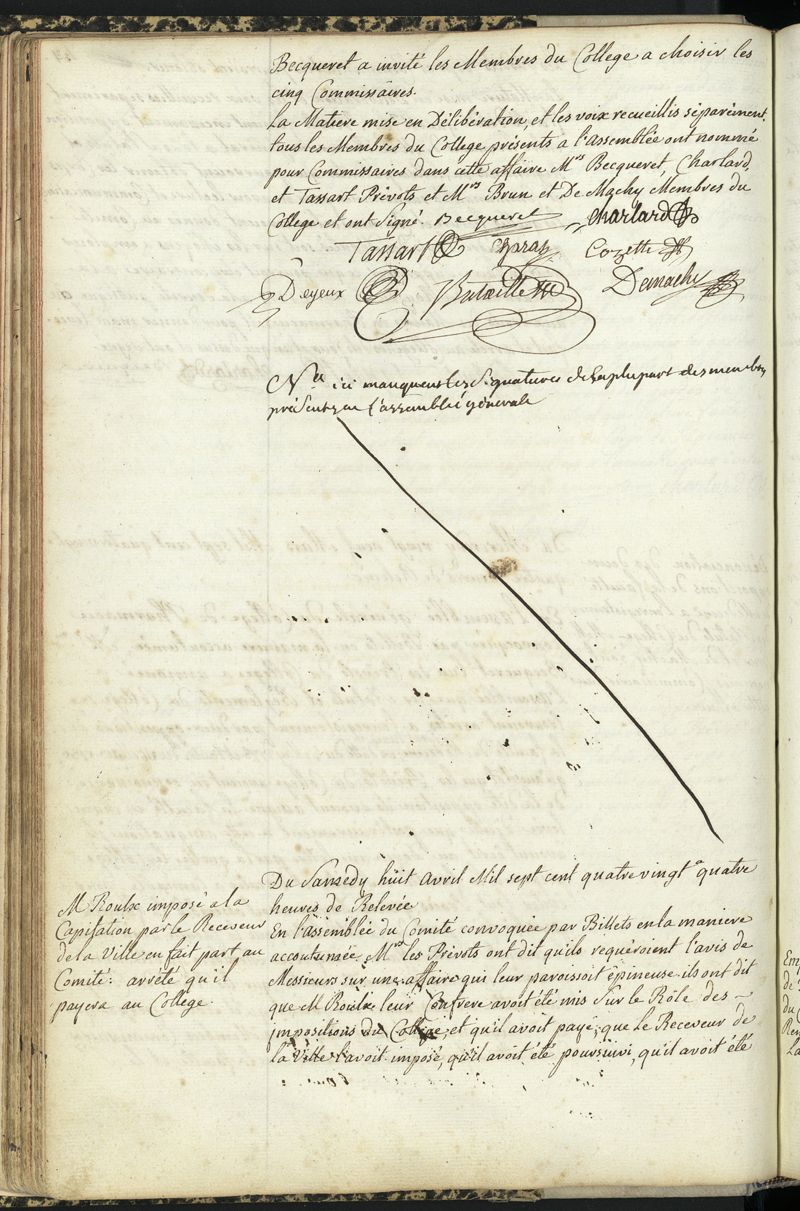 Becqueret a invité les Membres du College a choisir les
cinq Commissaires.
La Matiere mise en Délibération, et les voix recueillis séparément,
tous les Membres du College présents a l'assemblée ont nommé
pour Commissaires dans cette affaire Mrs Becqueret, Charlard,
et Tassart Prévots et Mrs Brun et De Machy Membres du
College et ont signé. Becqueret Charlard
Tassart Cozette
Deyeux Bataille Demachy
Na ici manquent les signatures de la plupart des membres
présents en l'assemblée générale
Du Samedy huit Avril Mil sept cent quatre vingt a quatre
heures de Relevée
En l'assemblée du Comité convoquée par Billets en la maniere
accoutumée Mrs les Prévots ont dit qu'ils requéroient l'avis de
Messieurs sur une affaire qui leur paroissoit épineuse ils ont dit
que M Roulx leur Confrere avoit été mis sur le Rôle des
impositions du College, et qu'il avoit payé, que le Receveur de
la Ville l'avoit imposé, qu'il avoit été poursuivi, qu'il avoit été
M Roulx imposé a la
Capitation par le Receveur
de la Ville en fait part au
Comité: arrêté qu'il
payera au College.